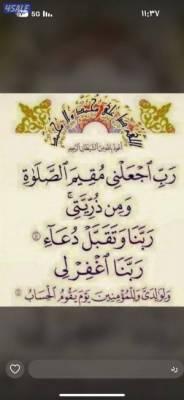 4SALE
5G
١١:٣٧
أعوذ بالله من الشيطان الرجيم
رَبِّ ٱجۡعَلۡنِي مُقِيمَ ٱلصَّلَوٰةِ
وَمِن ذُرِّيَّتِيۚ
رَبَّنَا وَتَقَبَّلۡ دُعَآءِ
رَبَّنَا ٱغۡفِرۡ لِي
وَلِوَٰلِدَيَّ وَلِلۡمُؤۡمِنِينَ يَوۡمَ يَقُومُ ٱلۡحِسَابُ
رد